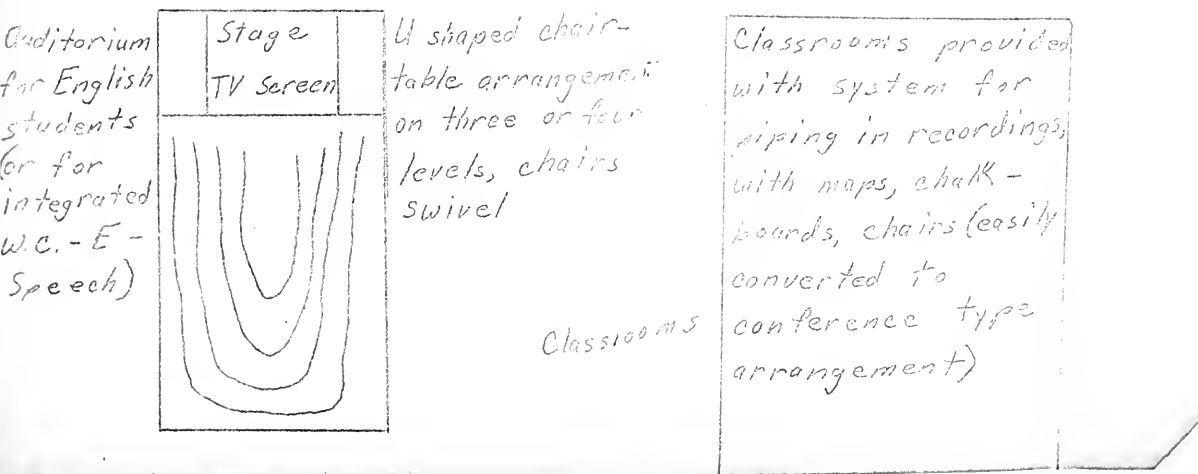 Auditorium
for English
students
(or for
integrated
W.C. - E -
Speech)
Stage
TV Screen
U shaped chair-
table arrangement
on three or four
levels, chairs
swivel
Classrooms
Classrooms provided
with system for
piping in recordings,
with maps, chalk-
boards, chairs (easily
converted to
conference type
arrangement)